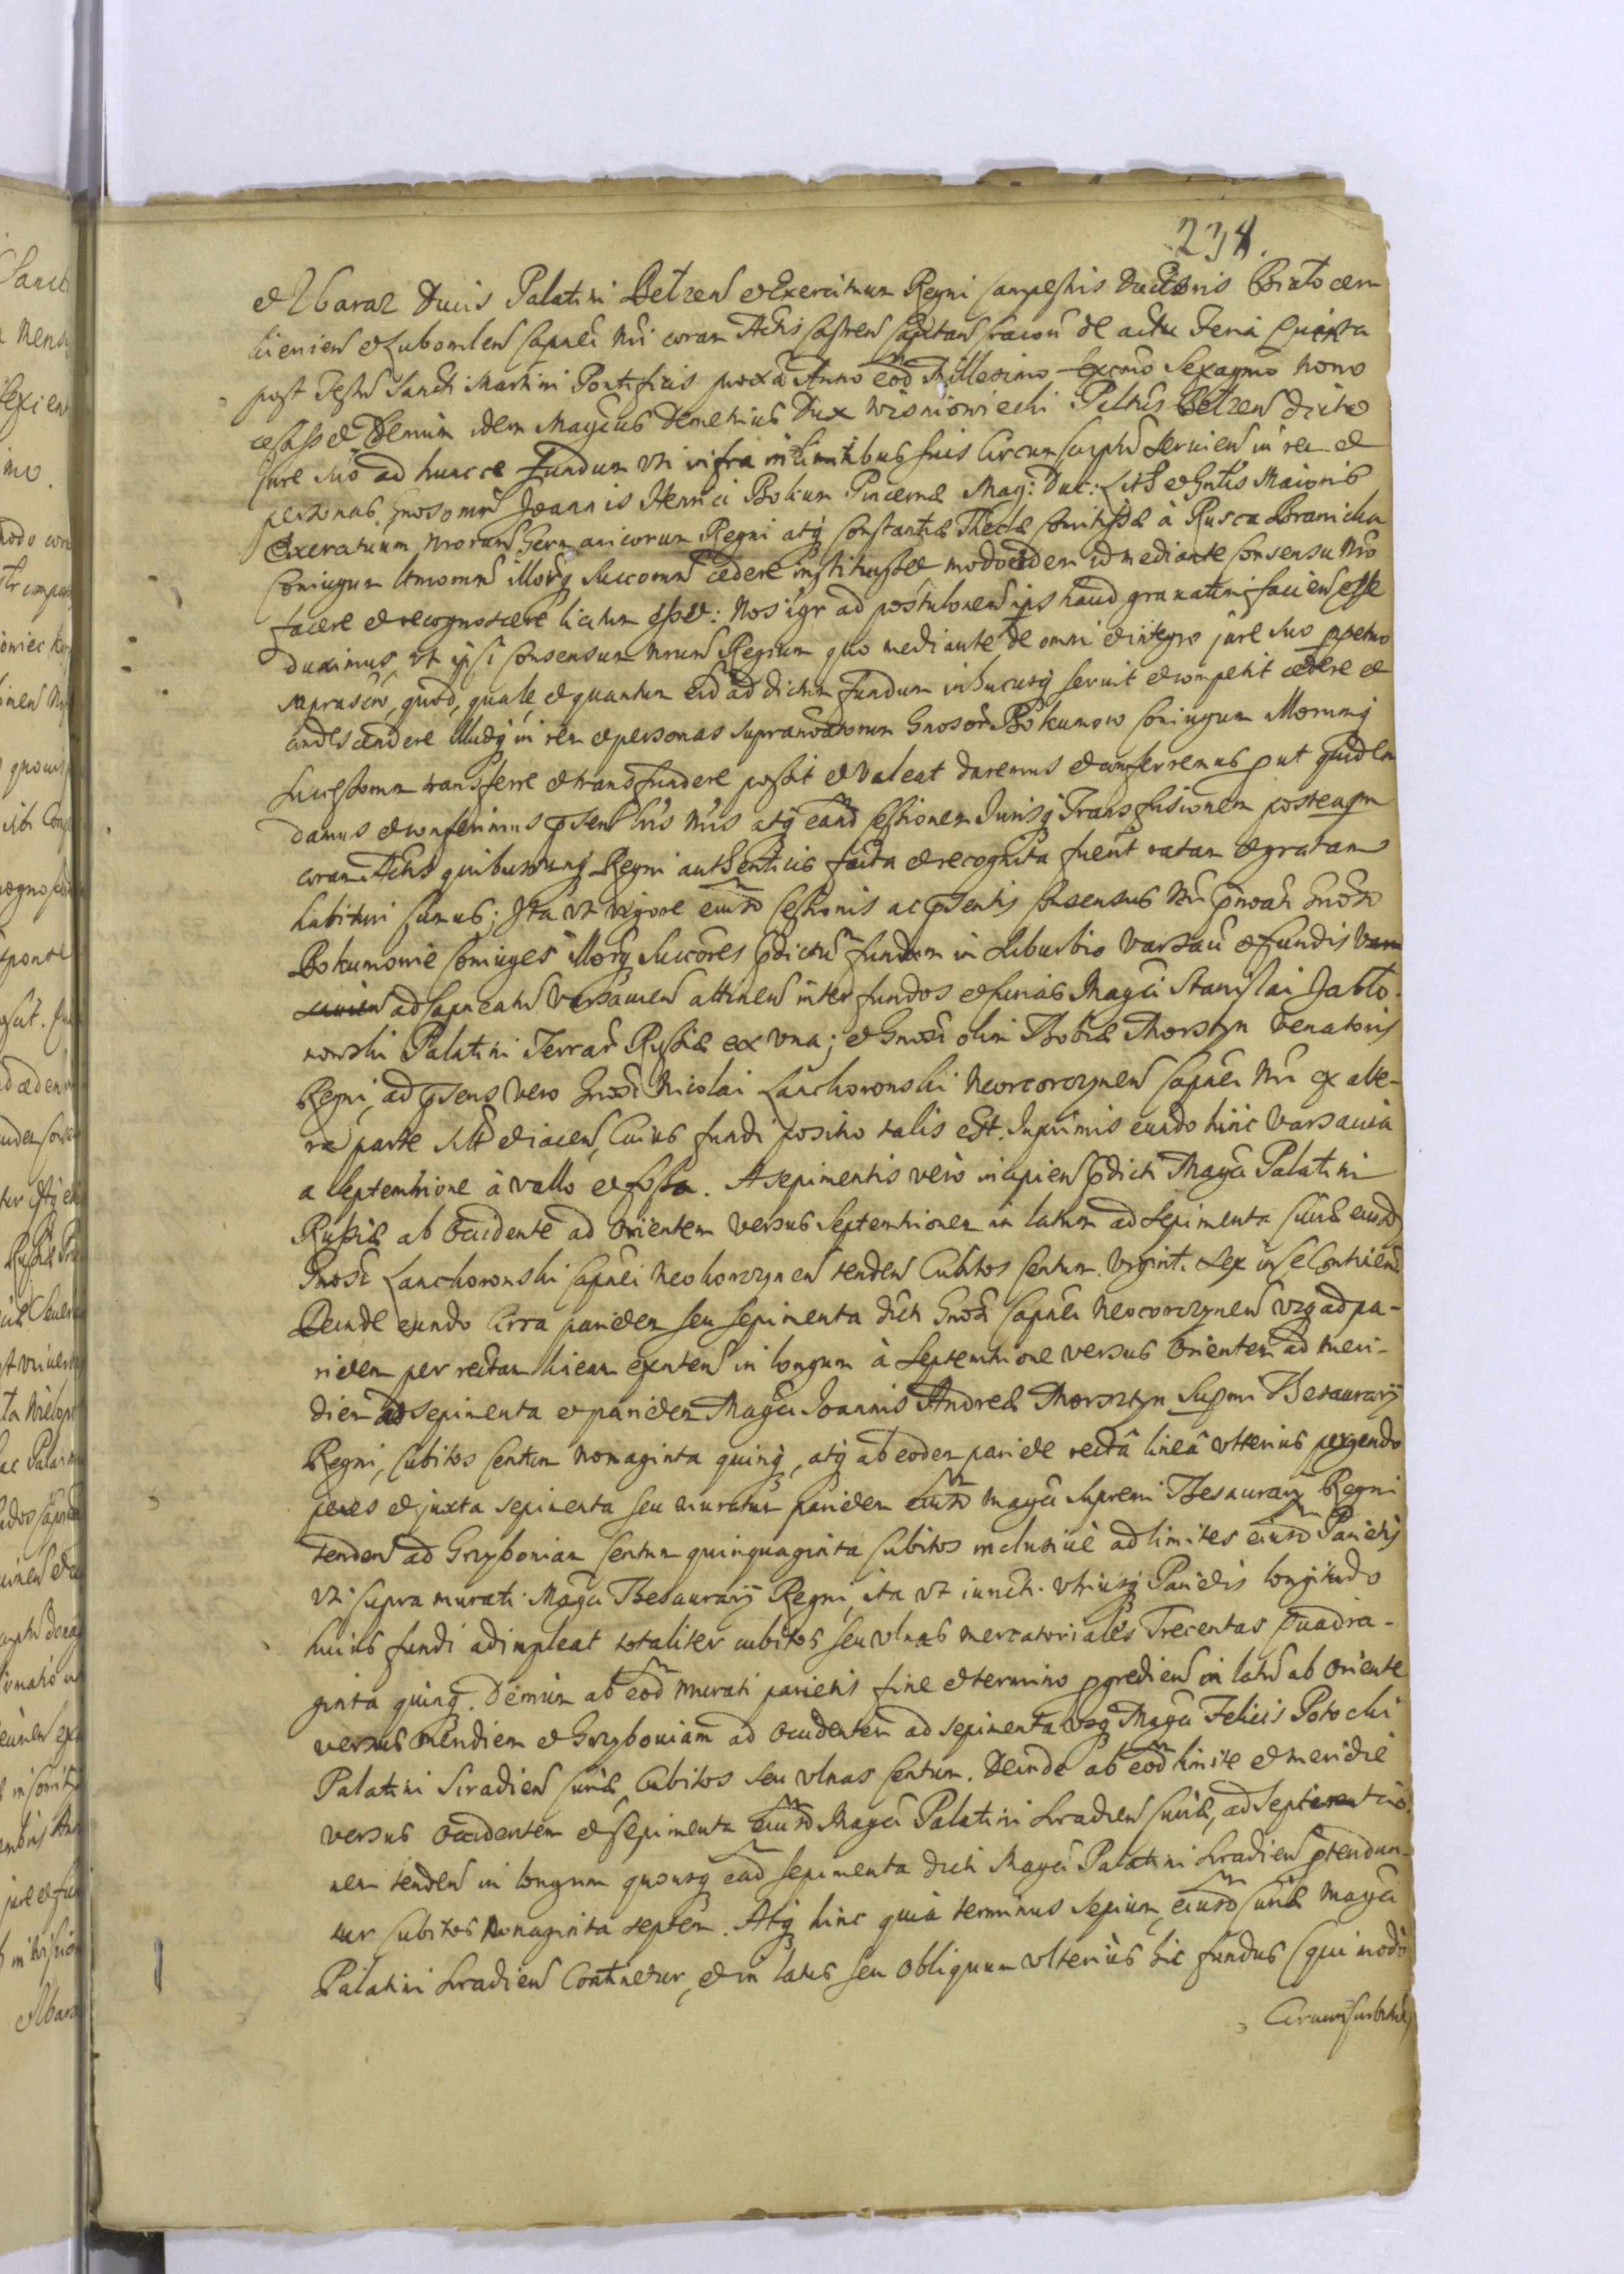 238.
et Zbaraz Ducis Palatini Belzen et Exercituum Regni Campestris Ductoris Białocer
kienien et Lubomlen Capnei Nri coram Actis Castren Capitan Cracou de actu Feria Quinta
post Festu Sancti Martini Pontificis proxa Anno eod Millesimo Sexcmo Sexagmo Nono
cessisset Demum idem Magcus Demetrius Dux Wisniowiecki Pltnus Belzen dicto
jure suo ad huncce Fundum uti infra in limitibus suis circumscriptu seruien in rem et
personas Gnosorum Joannis Henrici Bokum Pincernæ Mag: Duc: Lith et Gntis Maioris
Exercituum nrorum Germanicorum Regni atq Constantiæ Theclæ Comitissæ à Rusca Branicka
Coniugum Amorum illorq Succorum cedere instituisset modo eidem id mediante Consensu nro
facere et recognoscere licitum esset: Nos igr ad postulonem ips haud grauatim facien esse
duximus, ut ipsi Consensum nrum Regium quo mediante de omni et integro jure suo ppetuo
suprascro, quod, quale, et quantum eid ad dictum fundum in hucusq seruit et competit cedere et
condescendere illudq in rem et personas supranoatorum Gnosor Bokumow Coniugum illorumq
Successorum transferre et transfundere possit et valeat daremus et conferremus put quidem
damus et conferimus psen lris nris atq eand Cessionem Jurisq Transfusionem posteaqm
coram Actis quibuscunq Regni authenticis facta et recognita fuerit ratam et gratam
habituri sumus; Ita ut vigore eiusd Cessionis ac psentis Consensus Nri pnoati Gnosi
Bokumowie Coniuges illorq Succores pdictu fundum in Suburbio Varsau et fundis
ad Capneatu Varsauien attinen inter fundos et curias Magci Stanislai Jabło-
nowski Palatini Terrar Russiæ ex una; et Gnosi olim Tobiæ Morsztyn Venatoris
Regni, ad psens vero Gnosi Nicolai Lanckoronski Neocorczynen Capnei Nri ex alte-
ra parte situ et iacen, Cuius fundi positio talis est. Inprimis eundo hinc Varsauia
a Septemtrione à vallo et fossa. A sepimentis vero incipien pdicti Magci Palatini
Russiæ ab Occidente ad Orientem versus Septemtrionem in latum ad sepimenta Curiæ eiusd
Gnosi Lanckoronski Capnei Neokorczynen tenden Cubitos Centum vigint. Sex in se Continen
Deinde eundo Circa parietem seu sepimenta dicti Gnosi Capnei Neocorczynen usq ad pa-
rietem per rectam lineam existen in longum à Septemtrione versus Orientem ad meri-
diem ad sepimenta et parietem Magci Joannis Andreæ Morsztyn Supmi Thesaurarij
Regni, Cubitos Centum Nonaginta quinq, atq ab eodem pariete rectâ lineâ ulterius pergendo
penes et juxta sepimenta seu muratum parietem eiusd Magci Supremi Thesaurarij Regni
tenden ad Grzybouiam Centum quinquaginta Cubitos inclusiuè ad limites eiusd Parietis
uti supra murati Magci Thesaurarij Regni, ita ut iuncti utriusq Parietis longitudo
huius fundi adimpleat totaliter cubitos seu ulnas mercatoriales Trecentas Quadra-
ginta quinq. Demum ab eod murati parietis fine et termino pgredien in latu ab Oriente
versus meridiem et Grzybouiam ad Occidentem ad sepimenta usq Magci Felicis Potocki
Palatini Siradien Curiæ, Cubitos seu ulnas Centum. Deinde ab eod limite et meridie
versus Occidentem et sepimenta eiusd Magci Palatini Siradien Curiæ, ad Septemtrio-
nem tenden in longum quousq ead sepimenta dicti Magci Palatini Siradien ptendun-
tur Cubitos Nonaginta septem. Atq hinc quia terminus sepium, eiusd Curiæ Magci
Palatini Siradien Continetur, et in latus seu obliquum ulterius hic fundus (qui modo
Circumscribitur)